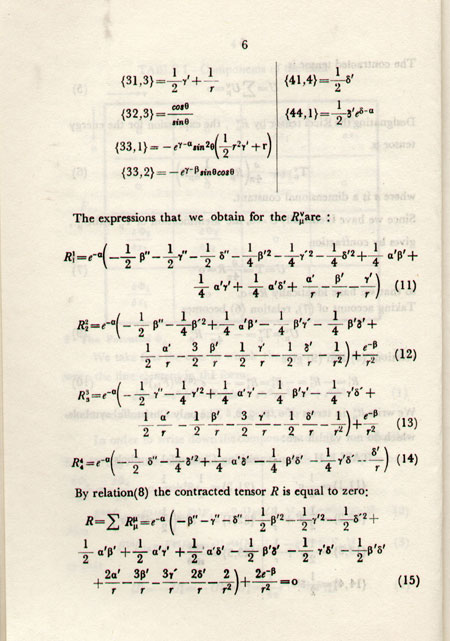 6
{31,3}=1/2 γ′ + 1/r
{41,4}=1/2 δ′
{32,3}=cosθ/sinθ
{44,1}=1/2 δ′e^{δ-α}
{33,1}= -e^{γ-α}sin²θ(1/2 r²γ′ + r)
{33,2}= -e^{γ-β}sinθcosθ
The expressions that we obtain for the R^ν_μ are :
R^1_1=e^{-α}(-1/2 β″ - 1/2 γ″ - 1/2 δ″ - 1/4 β′² - 1/4 γ′² - 1/4 δ′² + 1/4 α′β′ +
1/4 α′γ′ + 1/4 α′δ′ + α′/r - β′/r - γ′/r) (11)
R^2_2=e^{-α}(-1/2 β″ - 1/4 β′² + 1/4 α′β′ - 1/4 β′γ′ - 1/4 β′δ′ +
1/2 α′/r - 3/2 β′/r - 1/2 γ′/r - 1/2 δ′/r - 1/r²) + e^{-β}/r² (12)
R^3_3=e^{-α}(-1/2 γ″ - 1/4 γ′² + 1/4 α′γ′ - 1/4 β′γ′ - 1/4 γ′δ′ +
1/2 α′/r - 1/2 β′/r - 3/2 γ′/r - 1/2 δ′/r - 1/r²) + e^{-β}/r² (13)
R^4_4=e^{-α}(-1/2 δ″ - 1/4 δ′² + 1/4 α′δ′ - 1/4 β′δ′ - 1/4 γ′δ′ - δ′/r) (14)
By relation(8) the contracted tensor R is equal to zero:
R=∑ R^μ_μ=e^{-α}(-β″-γ″-δ″- 1/2 β′² - 1/2 γ′² - 1/2 δ′² +
1/2 α′β′ + 1/2 α′γ′ + 1/2 α′δ′ - 1/2 β′γ′ - 1/2 γ′δ′ - 1/2 β′δ′
+ 2α′/r - 3β′/r - 3γ′/r - 2δ′/r - 2/r²) + 2e^{-β}/r² =o (15)